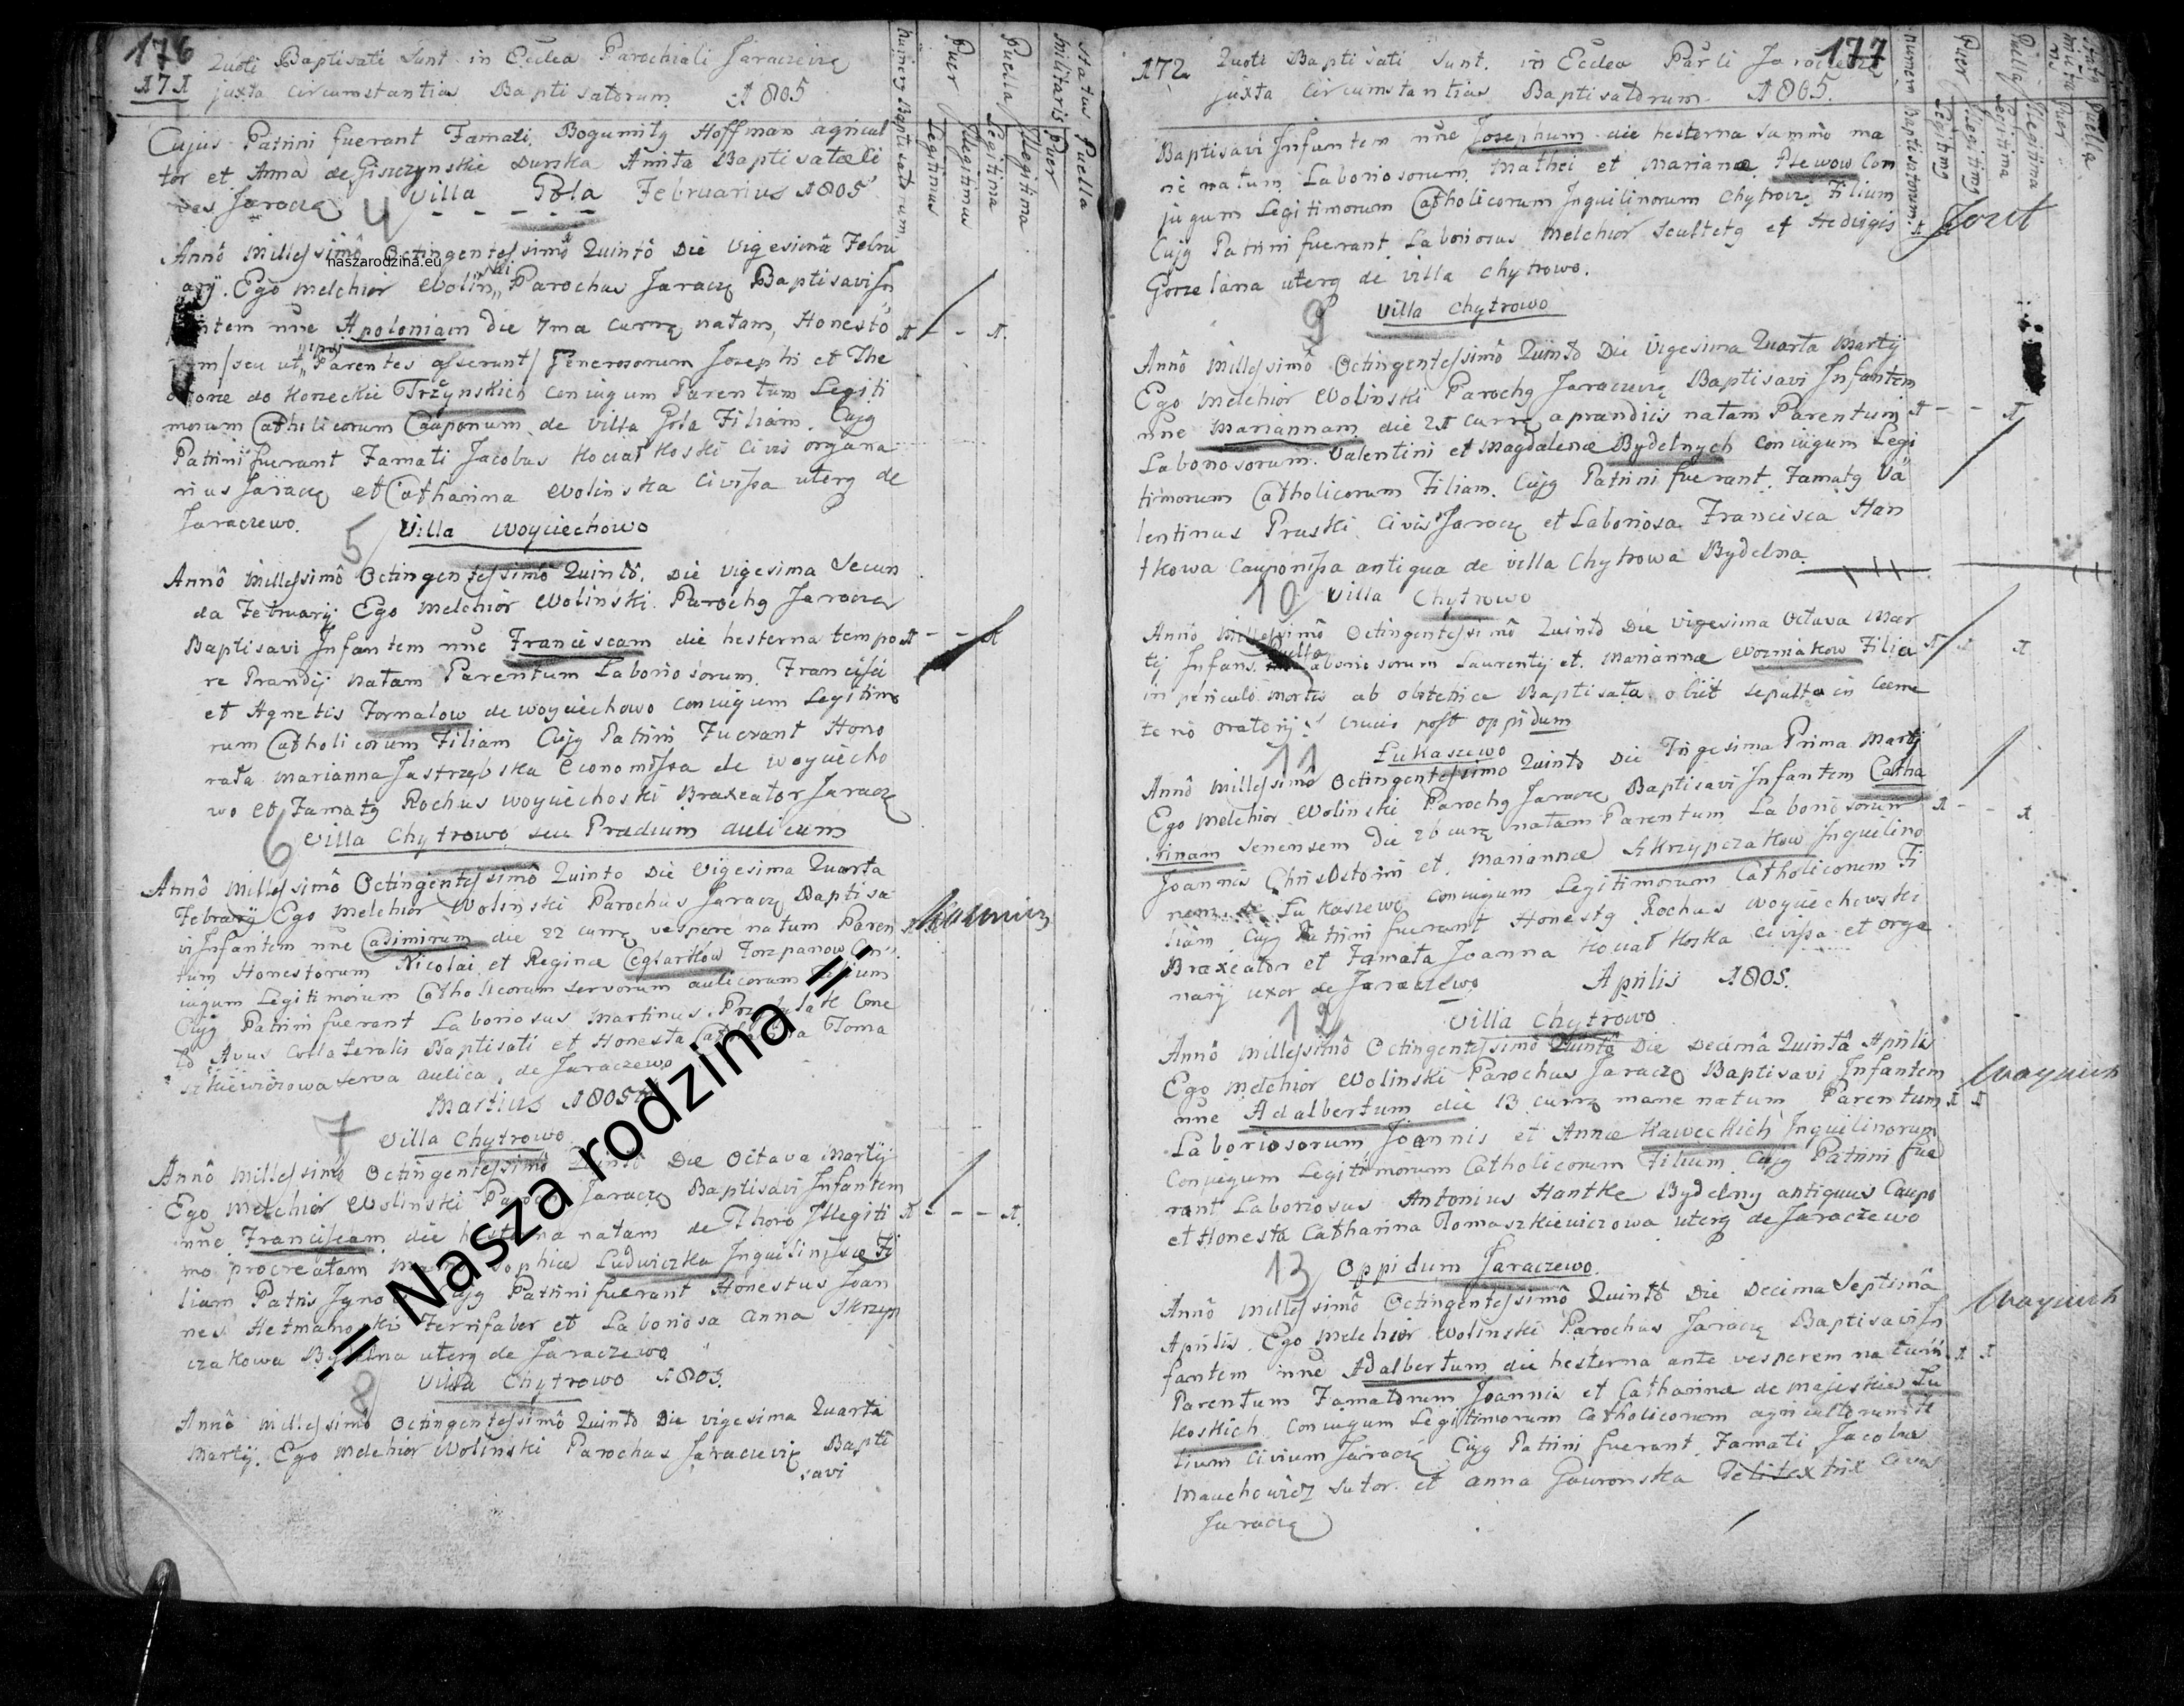 176
171
Quoti Baptisati Sunt in Ecclea Parochiali Jaraczevię
juxta Circumstantias Baptisatorum 1805
Numerus Baptisatorum
Puer Legitimus Illegitimus
Puella Legitima Illegitima
Status militaris Puer Puella
Cujus Patrini fuerant Famati Bogumilg Hoffman agricul
tor et Anna de Amita Baptisatæ
ves Jaraczę
4 Villa Gola Februarius 1805
Annô Millessimô Octingentessimô Quintô Die Vigesimâ Febru
naszarodzina.eu
arÿ. Ego Melchior Wolinski Parochus Jaraczę Baptisavi In
fantem nñe Apoloniam die 7ma currę natam, Honesto
rum /seu ut ipsi Parentes asserunt/ Generosorum Josephi et The
one do Koneckie Trzynskich coniugum Parentum Legiti
morum Catholicorum Cauponum de Villa Gola Filiam. Cujg
Patrini fuerant Famati Jacobus Kociałkoski Civis organa
rius Jaraczę et Catharina Wolinska Civissa uterg de
Jaraczewo.
5 Villa Woyciechowo
Annô Millessimô Octingentessimô Quintô. Die Vigesima Secun
da Februarij Ego Melchior Wolinski Parochg Jaracze
Baptisavi Infantem nñe Franciscam die hesterna tempo 1 - - 1
re Prandij natam Parentum Laboriosorum Francisci
et Agnetis Fornalow de Woyciechowo coniugum Legitimo
rum Catholicorum Filiam Cujg Patrini Fuerant Hono
rata Marianna Jastrzębska Economissa de Woyciecho
wo et Famatg Rochus Woyciechoski Braxeator Jaraczę
6 Villa Chytrowo seu Prædium aulicum
Annô Millessimô Octingentessimô Quinto Die Vigesima Quarta
Februarÿ Ego Melchior Wolinski Parochus Jaraczę Baptisa
vi Infantem nñe Casimirum die 22 currę vespere natum Paren
Kazimirz
tum Honestorum Nicolai et Reginæ Ceglarkow Torzpanow Con
iugum Legitimorum Catholicorum servorum aulicorum Filium
Cujg Patrini fuerant Laboriosus Martinus
Avus Collateralis Baptisati et Honesta Catharina Toma
szkiewiczowa serva aulica de Jaraczewo
Martius 1805
7 Villa Chytrowo
Annô Millessimô Octingentessimô Quintô Die Octava Martÿ
Ego Melchior Wolinski Parochg Jaraczę Baptisavi Infantem
nñe Franciscam die hesterna natam de Thoro Illegiti 1 - - - 1
mo procreatam Sophiæ Ludwiczka Inquilinissæ Fi
liam Patris Cujg Patrini fuerant Honestus Joan
nes Hetmanoski Ferrifaber et Laboriosa Anna Skrzyp
czakowa Bydelna uterg de Jaraczewo
-= Nasza rodzina =-
8 Villa Chytrowo 1805.
Annô Millessimô Octingentessimô Quintô Die vigesima Quarta
Martÿ. Ego Melchior Wolinski Parochus Jaraczevię Bapti
savi
177
172 Quoti Baptisati Sunt. in Ecclea Parli Jaraczevię
juxta Circumstantias Baptisatorum. 1805.
Numerus Baptisatorum.
Puer Legitimg Illegitimg
Puella Legitima Illegitima
Puer Puella
Baptisavi Infantem nñe Josephum die hesterna summô ma
ne natum Laboriosorum Mathei et Mariannæ Plewow Con
jugum Legitimorum Catholicorum Inquilinorum Chytrow. Filium
Józef
Cujg Patrini fuerant Laboriosus Melchior Scultetg et Hedvigis
Gorzelana uterg de villa Chytrowo.
9 Villa Chytrowo
Annô Millessimô Octingentessimô Quintô Die Vigesima Quarta Martij
Ego Melchior Wolinski Parochg Jaraczevię Baptisavi Infantem
nñe Mariannam die 21 currę a prandiis natam Parentum 1 - - 1
Laboriosorum. Valentini et Magdalenæ Bydelnych coniugum Legi
timorum Catholicorum Filiam. Cujg Patrini fuerant. Famatg Va
lentinus Pruski Civis Jaraczę et Laboriosa Francisca Han
tkowa Cauponissa antiqua de villa Chytrowa Bydelna.
10 Villa Chytrowo
Annô Millessimô Octingentessimô Quintô Die vigesima Octava Mar
tij Infans Puella Laboriosorum Laurentij et Mariannæ Wozniakow Filia
in periculô mortis ab obstetrice Baptisata obiit sepulta in Cæme
terio oratorij S. Crucis post oppidum
11 Łukaszewo
Annô Millessimô Octingentessimo Quintô Die Trigesima Prima Martij
Ego Melchior Wolinski Parochg Jaraczę Baptisavi Infantem Catha
rinam Senensem Die 26 currę natam Parentum Laboriosorum 1 - - 1
Joannis Chrisostomi et Mariannæ Skrzypczakow Inquilino
rum de Łukaszewo coniugum Legitimorum Catholicorum Fi
liam Cujg Patrini fuerant Honestg Rochus Woyciechowski
Braxeator et Famata Joanna Kociałkoska Civissa et orga
narij uxor de Jaraczewo
Aprilis 1805.
12 Villa Chytrowo
Annô Millessimô Octingentessimô Quintô Die Decimâ Quintâ Aprilis
Ego Melchior Wolinski Parochus Jaraczę Baptisavi Infantem
Woyciech
nñe Adalbertum die 13 currę mane natum Parentum 1 1
Laboriosorum Joannis et Annæ Kaweckich Inquilinorum
Coniugum Legitimorum Catholicorum Filium Cujg Patrini fue
rant Laboriosus Antonius Hantke Bydelny antiquus Caupo
et Honesta Catharina Tomaszkiewiczowa uterg de Jaraczewo
13 Oppidum Jaraczewo.
Annô Millessimô Octingentessimô Quintô Die Decima Septimâ
Woyciech
Aprilis. Ego Melchior Wolinski Parochus Jaraczę Baptisavi In
fantem nñe Adalbertum die hesterna ante vesperem natum. 1 1
Parentum Famatorum Joannis et Catharinæ de Majeskie Łu
koskich Coniugum Legitimorum Catholicorum agricultorum
tium Civium Jaraczę Cujg Patrini fuerant. Famati Jacobus
Mauchowicz Sutor et Anna Gawronska
Jaraczę